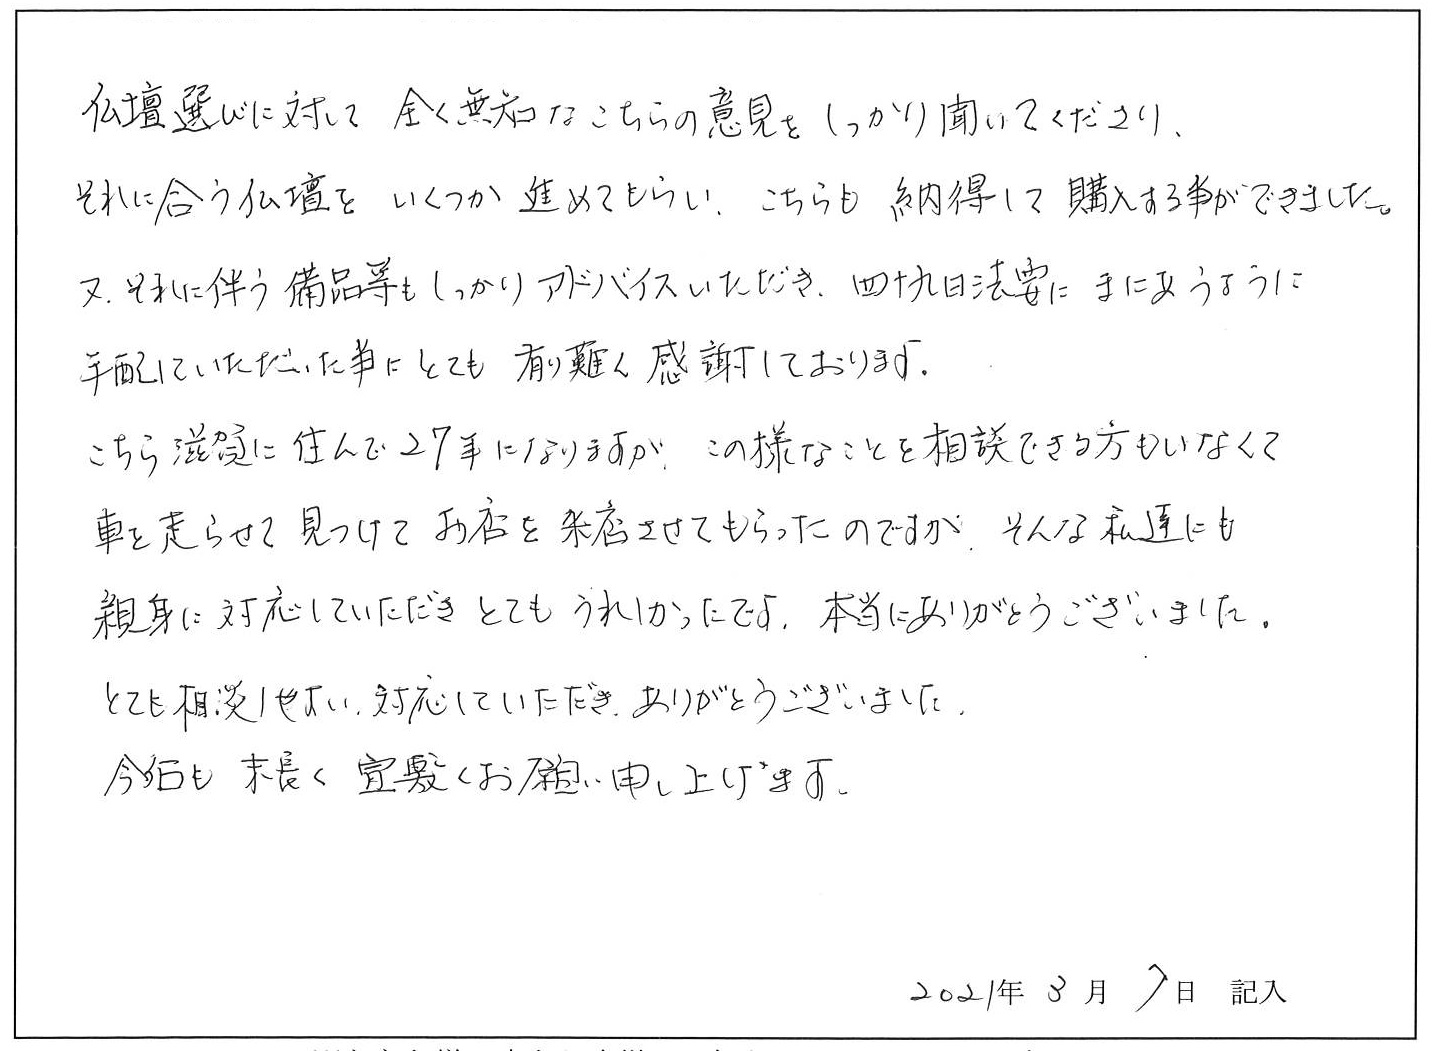 仏壇選びに対して 全く無知なこちらの意見を しっかり聞いてくださり、
それに合う仏壇を いくつか 進めてもらい、こちらも 納得して 購入する事ができました。
又、それに伴う 備品等もしっかり アドバイスいただき、四十九日法要に まにあうように
手配していただいた事に とても 有り難く 感謝しております。
こちら滋賀に 住んで27年になりますが、この様なことを 相談できる方もいなくて
車を走らせて 見つけて お店を 来店させてもらったのですが、そんな私達にも
親身に 対応していただき とても うれしかったです。本当にありがとうございました。
とても相談しやすい、対応していただき、ありがとうございました。
今后も 末長く 宜敷くお願い申し上げます。
2021年 3月 7日 記入